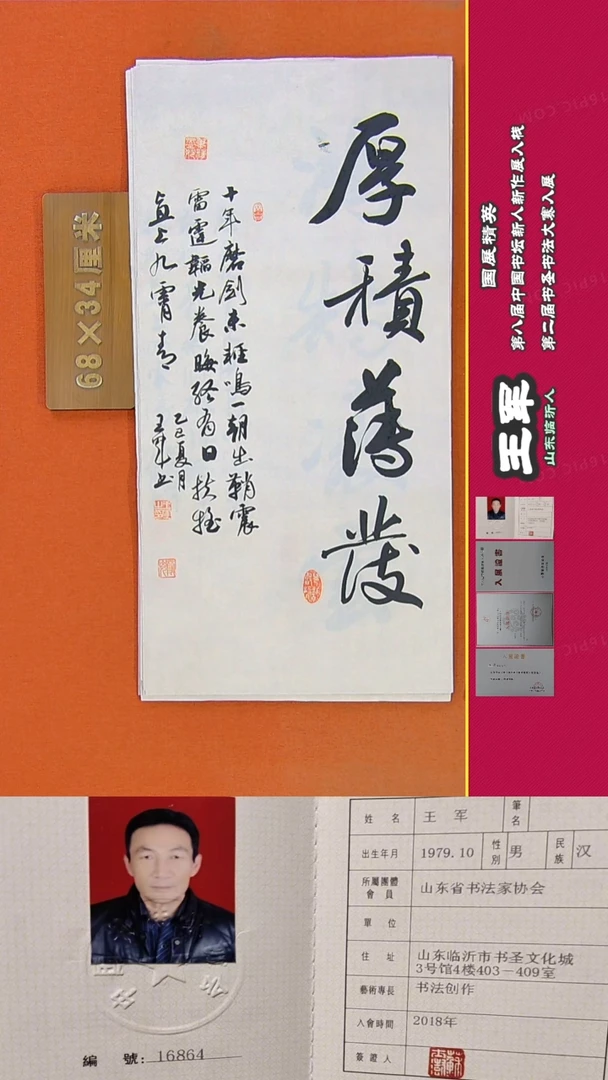 厚積薄發
十年磨剑未轻鸣一朝出鞘震
雷霆韬光养晦终有日扶摇
直上九霄青
乙巳夏月
王军书
68×34厘米
国展精英
第八届中国书坛新人新作展入展
第二届书圣书法大赛入展
王军
山东临沂人
編 號: 16864
姓 名 王 军 筆名
出生年月 1979.10 性別 男 民族 汉
所屬團體會員 山东省书法家协会
單 位
住 址 山东临沂市书圣文化城
3号馆4楼403－409室
藝術專長 书法创作
入會時間 2018年
簽證人